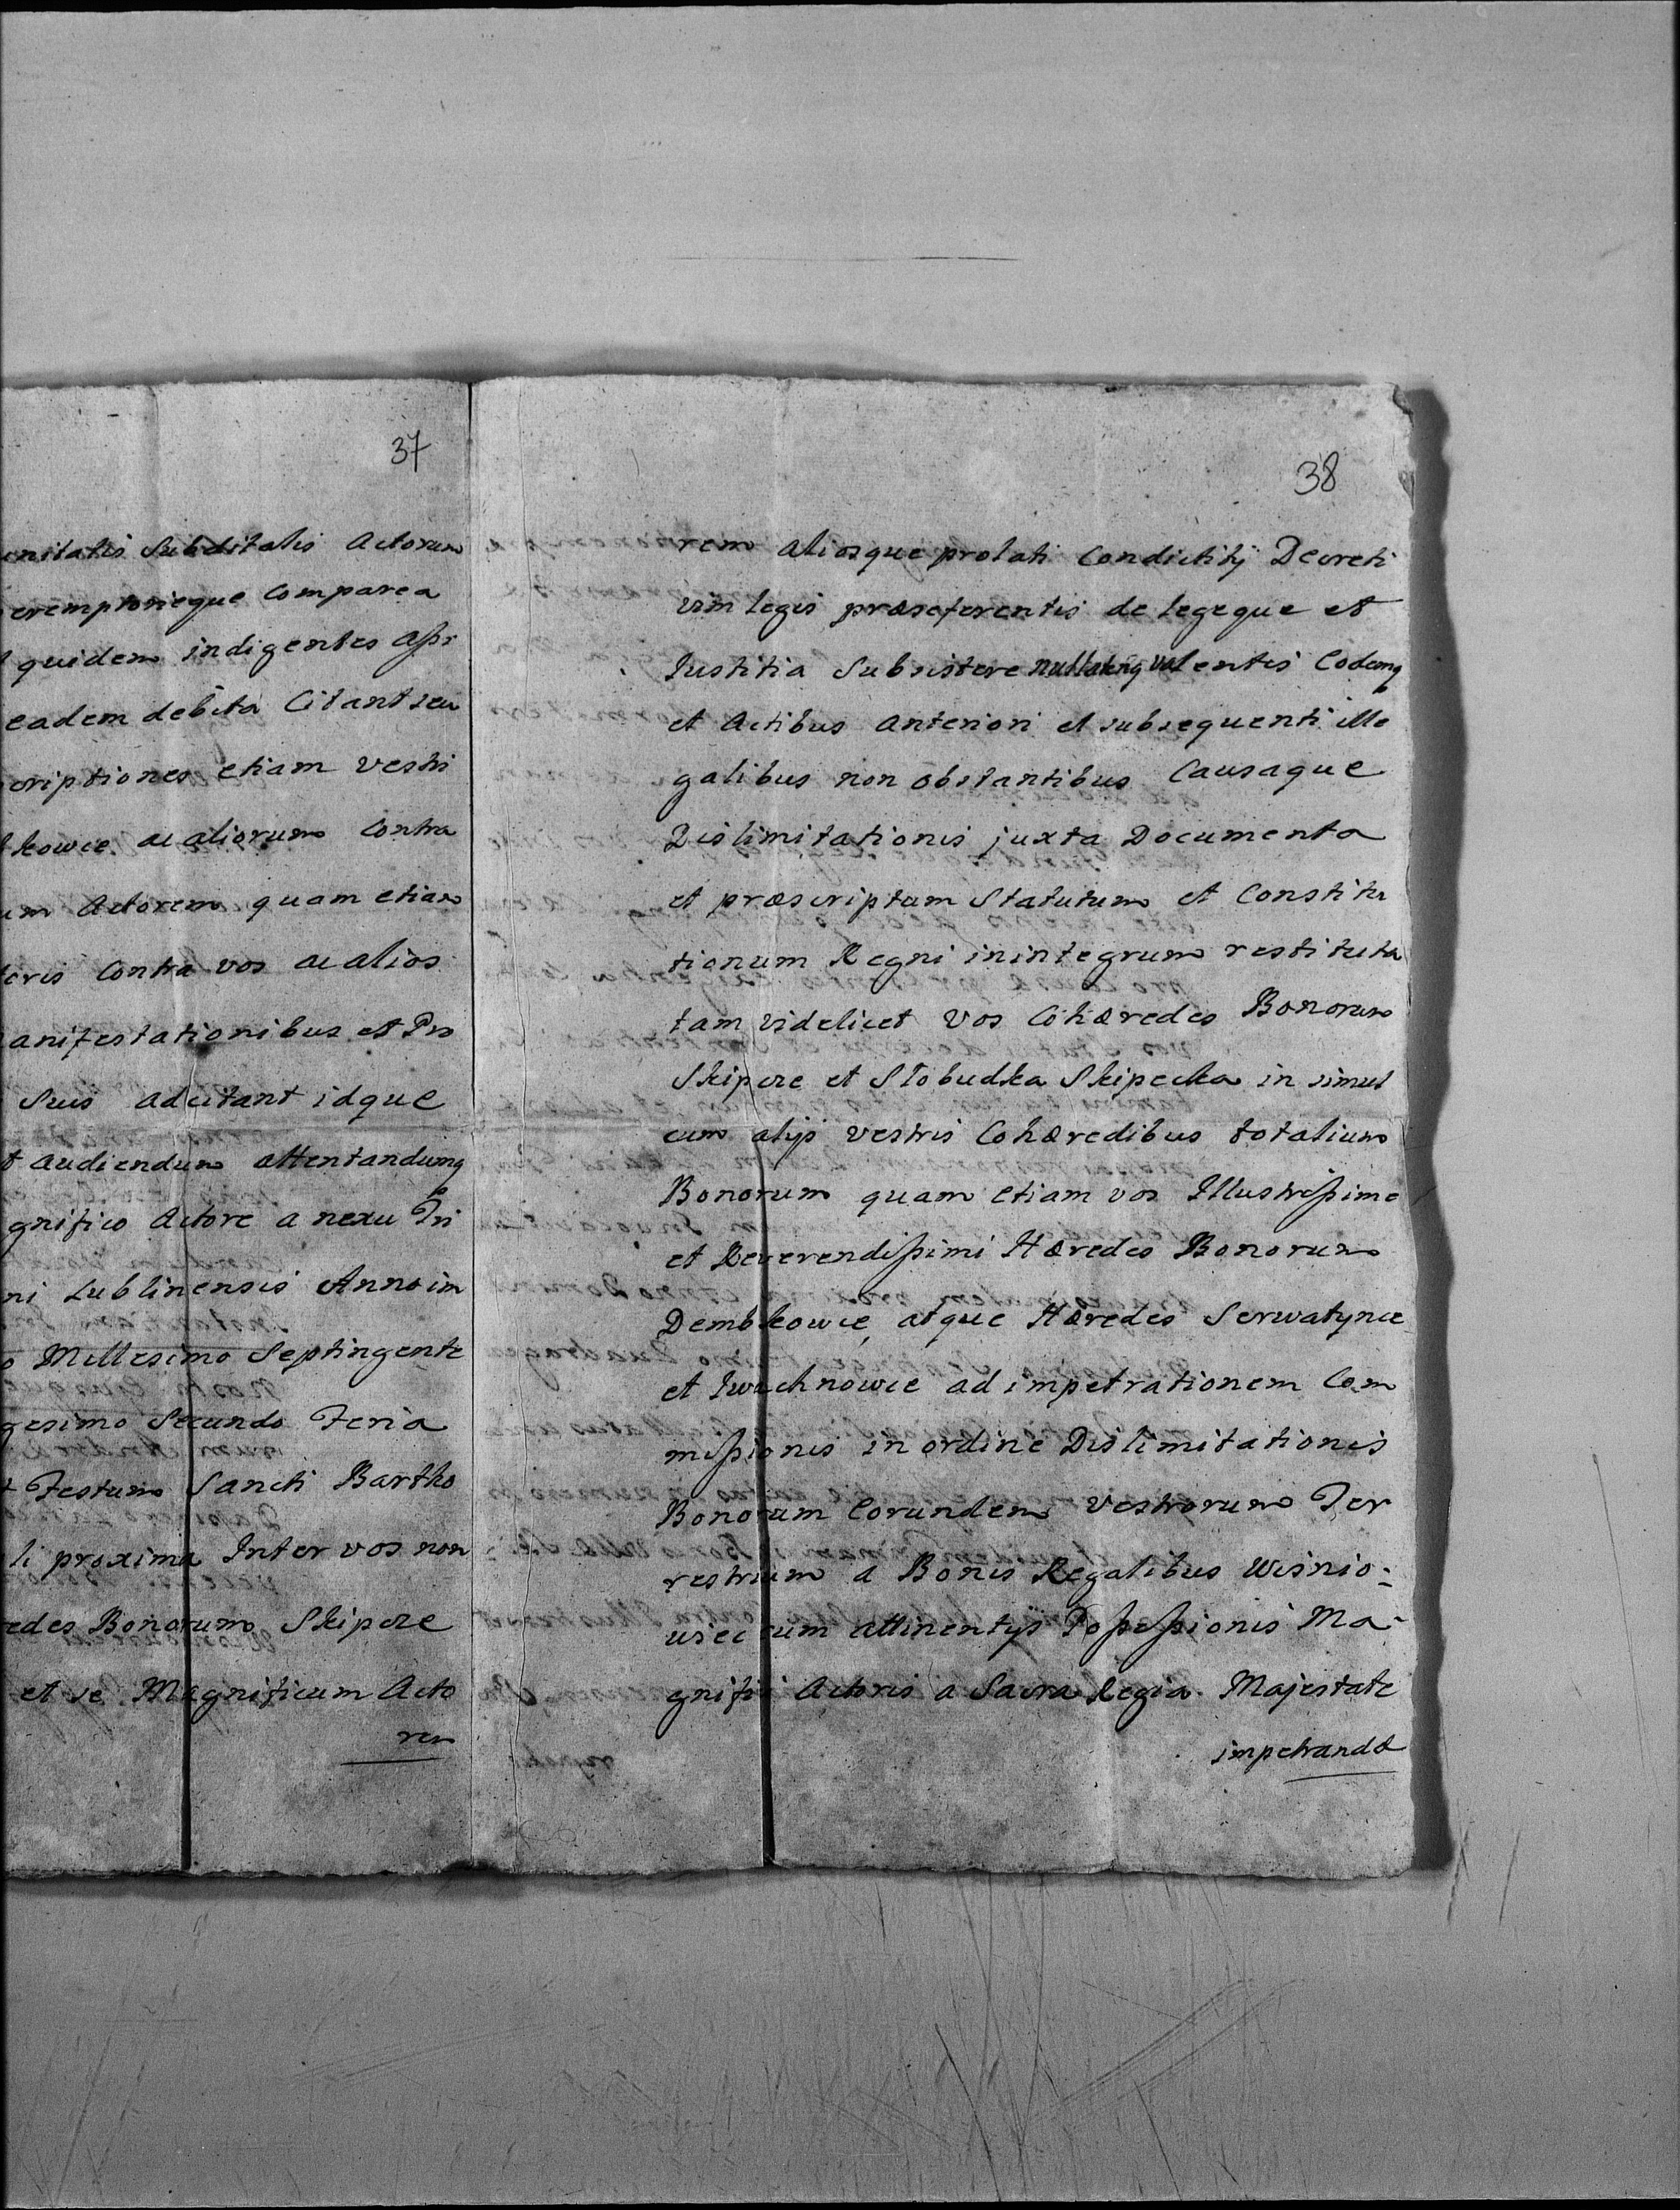 37
enitatis Subditalis Actorum
eremptorieque Comparea
quidem indigentes assi
eadem debita Citant seu
criptiones etiam vestri
kowce ac aliorum Contra
um Actorem quam etiam
teris Contra vos ac alios
anifestationibus et Pro
Suis adcitant idque
t audiendum attentandumq
gnifico Actore a nexu Tri
ni Lublinensis Anno im
o Millesimo Septingente
gesimo Secundo Feria
t Festum Sancti Bartho
li proxima Inter vos non
redes Bonorum Skipcze
et se Magnificum Acto
rem
38
rem aliosque prolati Condictitij Decreti
vim legis præseferentis de legeque et
Iustitia Subsistere nullatenq valentis Eodemq
et Actibus Anteriori et subsequenti ille
galibus non obstantibus Causaque
Dislimitationis juxta Documenta
et præscriptum Statutum et Constitu
tionum Regni inintegrum restituta
tam videlicet vos Cohæredes Bonorum
Skipcze et Słobudka Skipecka in simul
cum alijs vestris Cohæredibus totalium
Bonorum quam etiam vos Illustrissime
et Reverendissimi Hæredes Bonorum
Dembkowce atque Hæredes Serwatynce
et Iwachnowce ad impetrationem Com
missionis in ordine Dislimitationis
Bonorum Eorundem vestrorum Ter
restrium a Bonis Regalibus Wisnio-
wiec cum attinentijs Possessionis Ma-
gnifici Actoris a Sacra Regia Majestate
impetrandæ